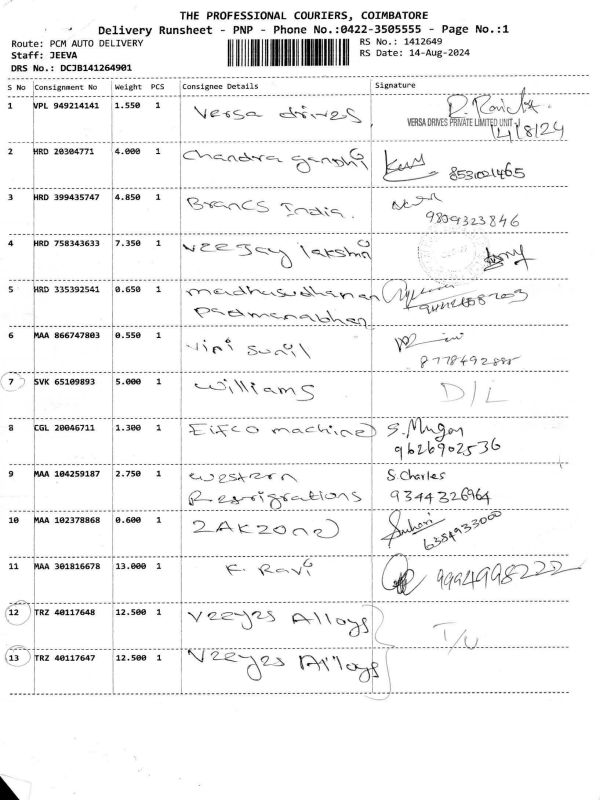 THE PROFESSIONAL COURIERS, COIMBATORE
Delivery Runsheet - PNP - Phone No.:0422-3505555 - Page No.:1
Route: PCM AUTO DELIVERY
Staff: JEEVA
DRS No.: DCJB141264901
RS No.: 1412649
RS Date: 14-Aug-2024
S No Consignment No Weight PCS Consignee Details Signature
1 VPL 949214141 1.550 1 Versa drives
VERSA DRIVES PRIVATE LIMITED UNIT-I
14/8/24
2 HRD 20304771 4.000 1 Chandra gandhi
3 HRD 399435747 4.850 1 Brancs India.
9809323846
4 HRD 758343633 7.350 1 Veejay lakshmi
5 HRD 335392541 0.650 1 madhusudhanan
Padmanabhan
6 MAA 866747803 0.550 1 vipi sunil
7 SVK 65109893 5.000 1 williams D/L
8 CGL 20046711 1.300 1 Eifco machine S. Mugan
9626902536
9 MAA 104259187 2.750 1 western S. Charles
Refrigrations 9344326964
10 MAA 102378868 0.600 1 ZAKZone
6384933000
11 MAA 301816678 13.000 1 K. Ravi 9994998222
12 TRZ 40117648 12.500 1 Veeyes Alloys
T/U
13 TRZ 40117647 12.500 1 Veeyes Alloys